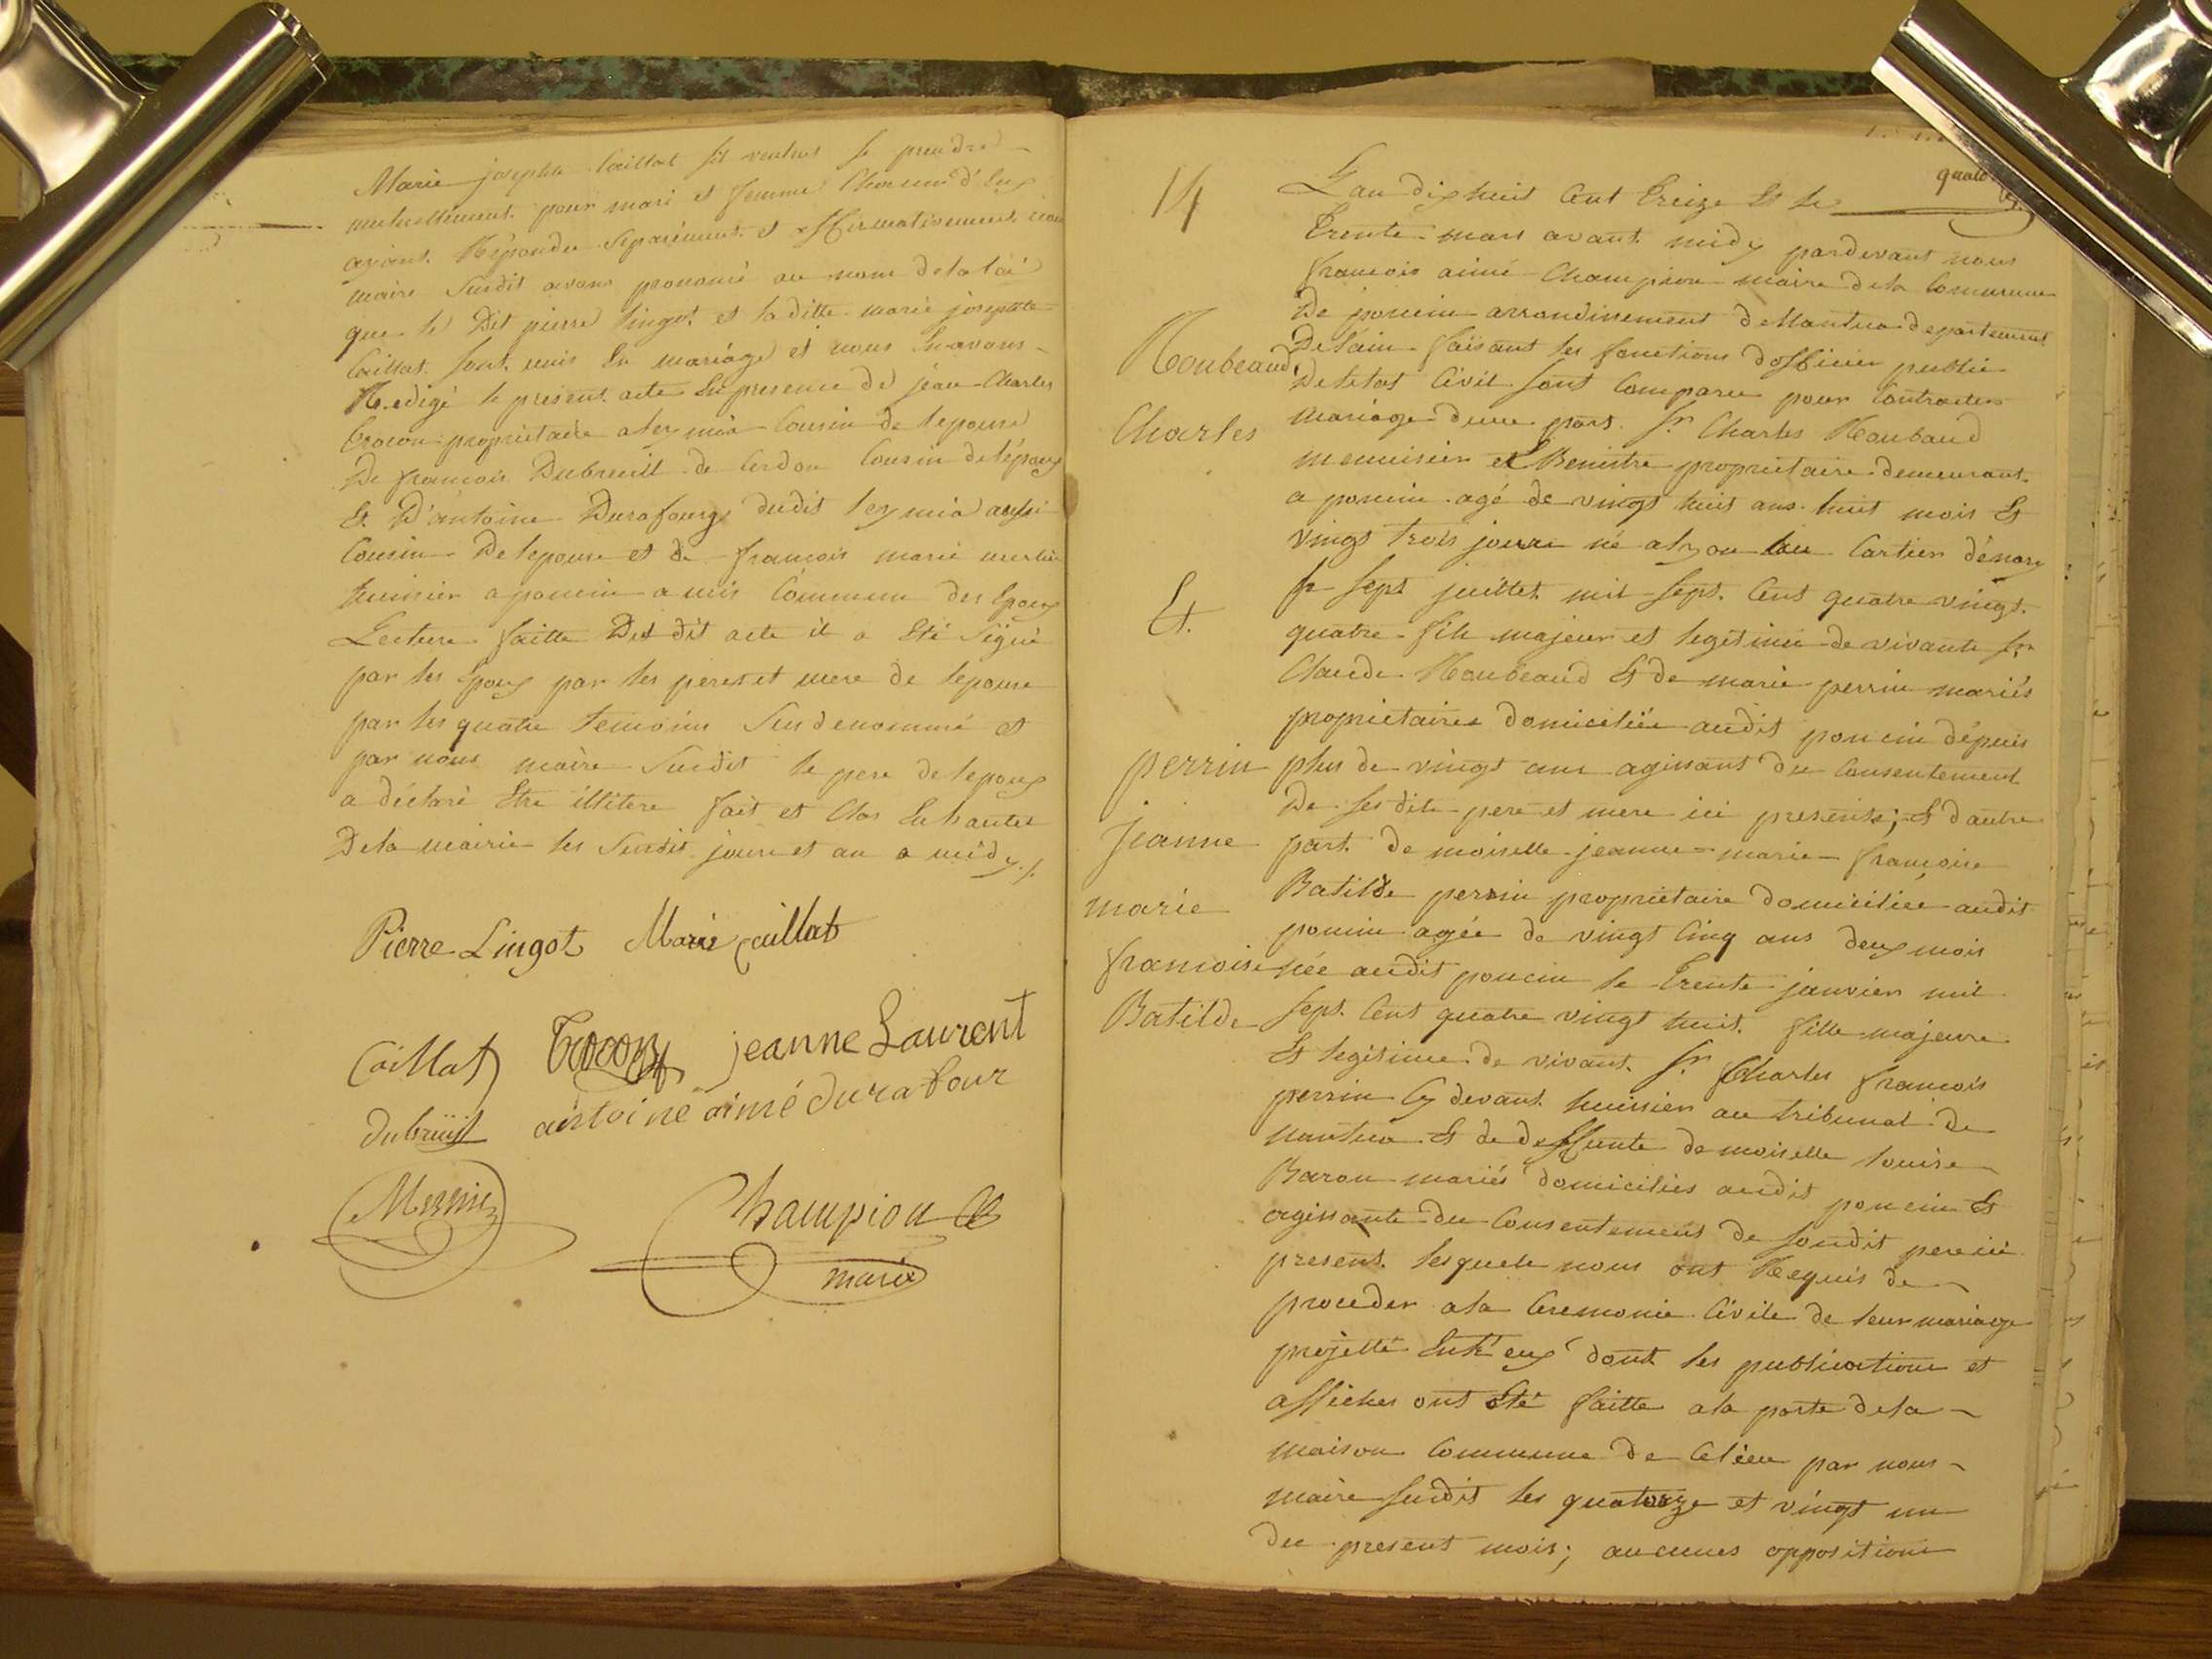 Marie josephte Caillat s'il veulent se prendre
mutuellement pour mari et femme Chacun d'eux
ayant Répondu separément et affirmativement nous
maire susdit avons prononcé au nom de la loi
que le Dit pierre Lingot et la ditte marie josephte
Caillat sont unis En mariage et nous En avons
Redigé le present acte En presence de jean Charles
Crocon proprietaire a leymia Cousin de lepouse
De francois Dubreuil de Cerdon Cousin de lépoux
Et D'antoine Durafourg dudit leymia aussi
Cousin De lepouse et de francois marie
huissier a poncin amis Commun des Epoux
Lecture faitte Du dit acte il a Eté Signé
par les Epoux par les peres et mere de lepouse
par les quatre temoins Sus denommé et
par nous maire Susdit le pere de lepoux
a déclaré Etre illitere fait et Clos En hautel
De la mairie les Susdit jours et an a midy ./.
Pierre Lingot Marie Caillat
Caillat jeanne Laurent
dubruil antoine aimé durafour
Champion
maire
14
quatorze
L'an dix huit Cent treize Et le
trente mars avant midy pardevant nous
francois aimé Champion maire de la Commune
De poncin arrondissement de Nantua departement
De lain faisant les fonctions dofficier public
De letat Civil sont Comparu pour Contracter
Roubeaud
mariage dune part Sr Charles Roubaud
Charles
menuisier et Benistre proprietaire demeurant
a poncin agé de vingt huit ans huit mois Et
vingt trois jours né a lyon au Cartier dénay
le sept juillet mil sept Cent quatre vingt
Et
quatre fils majeur et legitime de vivants Sr
Claude Roubeaud Et de marie perrin mariés
proprietaires domiciliés audit poncin dépuis
perrin
plus de vingt ans agissant du Consentement
De ses dits pere et mere ici presents; Et dautre
jeanne
part demoiselle jeanne = marie = francoise
Batilde perrin proprietaire domiciliée audit
marie
poncin agée de vingt Cinq ans deux mois
francoise
née audit poncin le trente janvier mil
Batilde
sept Cent quatre vingt huit fille majeure
Et legitime de vivant Sr Charles francois
perrin Cy devant huissier au tribunal de
nantua Et de deffunte demoiselle louise
Baron mariés domiciliés audit poncin Et
agissante du Consentement de sondit pere ici
present lesquels nous ont Requis de
proceder a la Ceremonie Civile de leur mariage
projetté Entr'eux dont les publications et
affiches ont Eté faitte a la porte de la
maison Commune de Ce lieu par nous
maire susdit les quatorze et vingt un
du present mois; aucunes oppositions